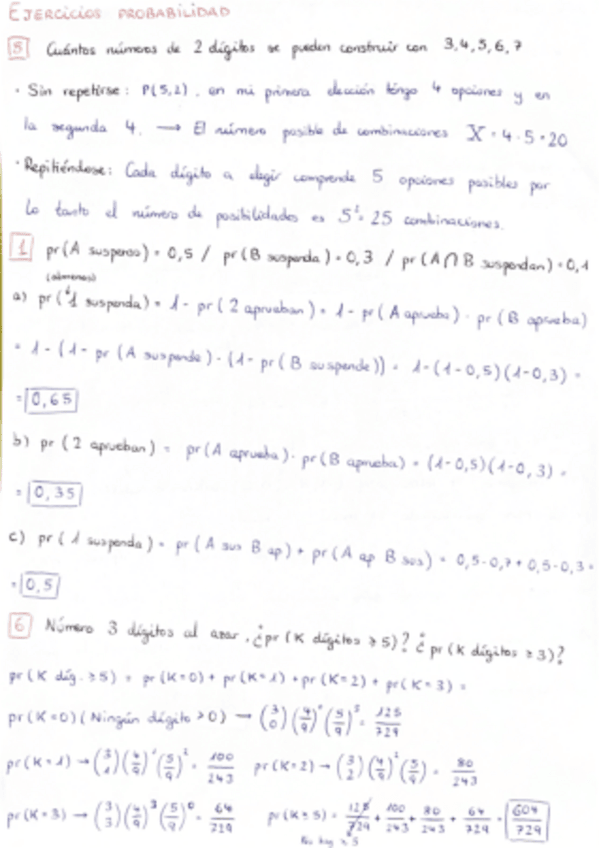 EJERCICIOS PROBABILIDAD
5 Cuántos números de 2 dígitos se pueden construir con 3,4,5,6,7
· Sin repetirse: P(5,2), en mi primera elección tengo 4 opciones y en
la segunda 4. → El número posible de combinaciones X = 4·5=20
· Repitiéndose: Cada dígito a elegir comprende 5 opciones posibles por
lo tanto el número de posibilidades es 5²=25 combinaciones.
1 pr(A suspenso) = 0,5 / pr(B suspenda) = 0,3 / pr(A∩B suspendan) = 0,1
(almenos)
a) pr(1 suspenda) = 1 - pr(2 aprueban) = 1 - pr(A aprueba) · pr(B aprueba)
= 1 - (1 - pr(A suspende) · (1 - pr(B suspende)) = 1-(1-0,5)(1-0,3) =
= 0,65
b) pr(2 aprueban) = pr(A aprueba) · pr(B aprueba) = (1-0,5)(1-0,3) =
= 0,35
c) pr(1 suspenda) = pr(A sus B ap) + pr(A ap B sus) = 0,5·0,7+0,5·0,3=
= 0,5
6 Número 3 dígitos al azar, ¿pr(K dígitos ≥ 5)? ¿pr(K dígitos ≥ 3)?
pr(K díg. ≥5) = pr(K=0) + pr(K=1) + pr(K=2) + pr(K=3) =
pr(K=0) (Ningún dígito >0) → (3 0)(4/9)⁰(5/9)³ = 125/729
pr(K=1) → (3 1)(4/9)¹(5/9)² = 100/243 pr(K=2) → (3 2)(4/9)²(5/9) = 80/243
pr(K=3) → (3 3)(4/9)³(5/9)⁰ = 64/729 pr(K≥5) = 125/729 + 100/243 + 80/243 + 64/729 = 604/729
No hay ≥ 5